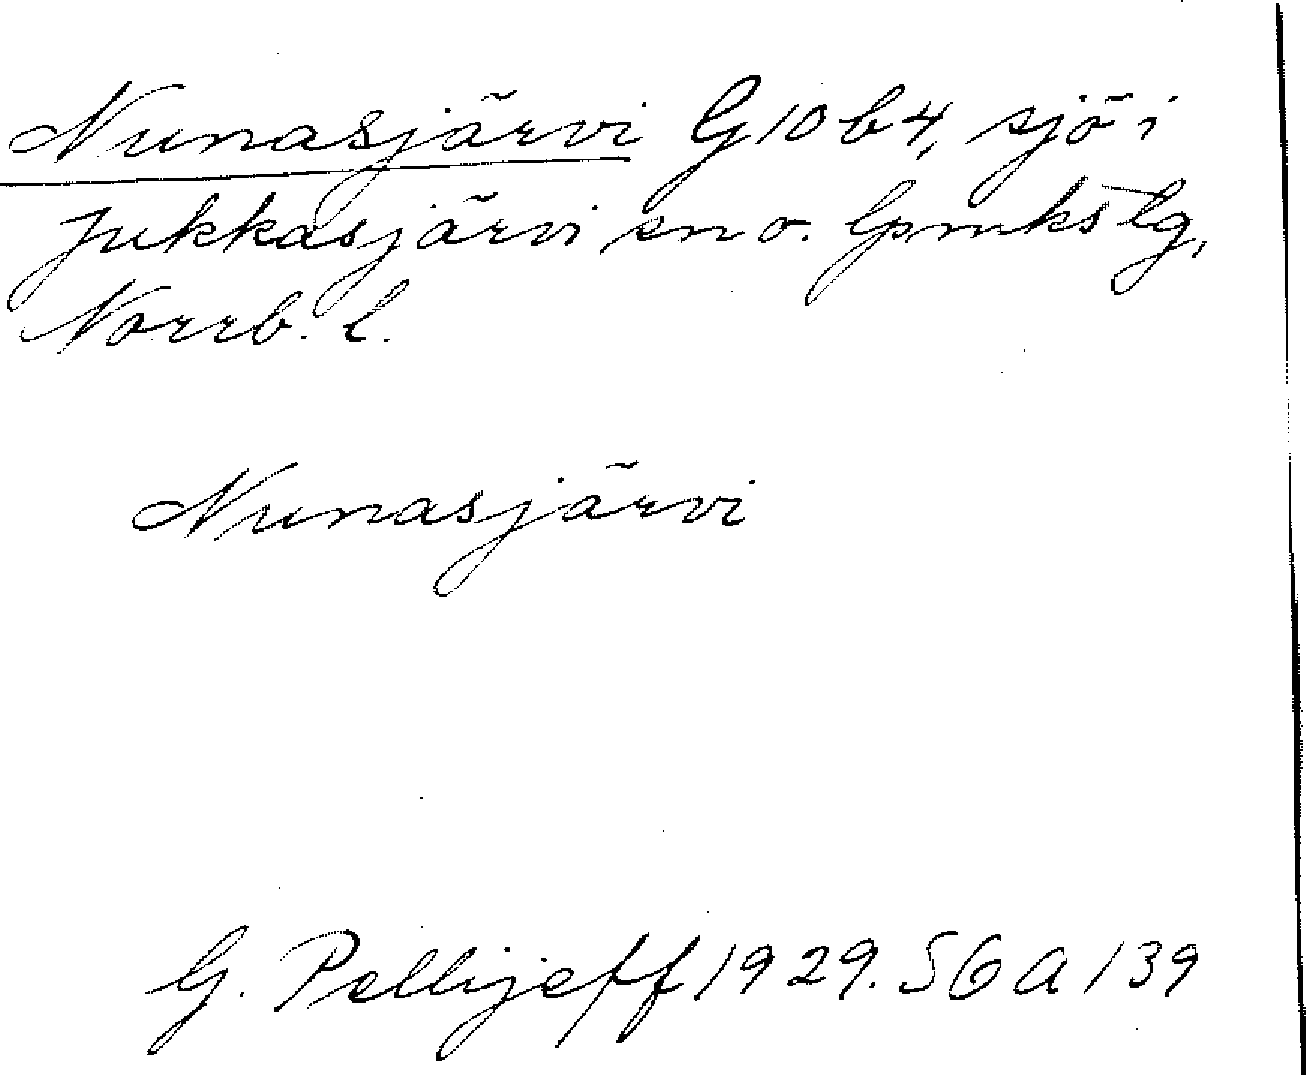 Nunasjärvi G10b4, sjö i
Jukkasjärvi sn o. lpmkslg,
Norrb. l.
Nunasjärvi
G. Pellijeff 1929. SGA 139